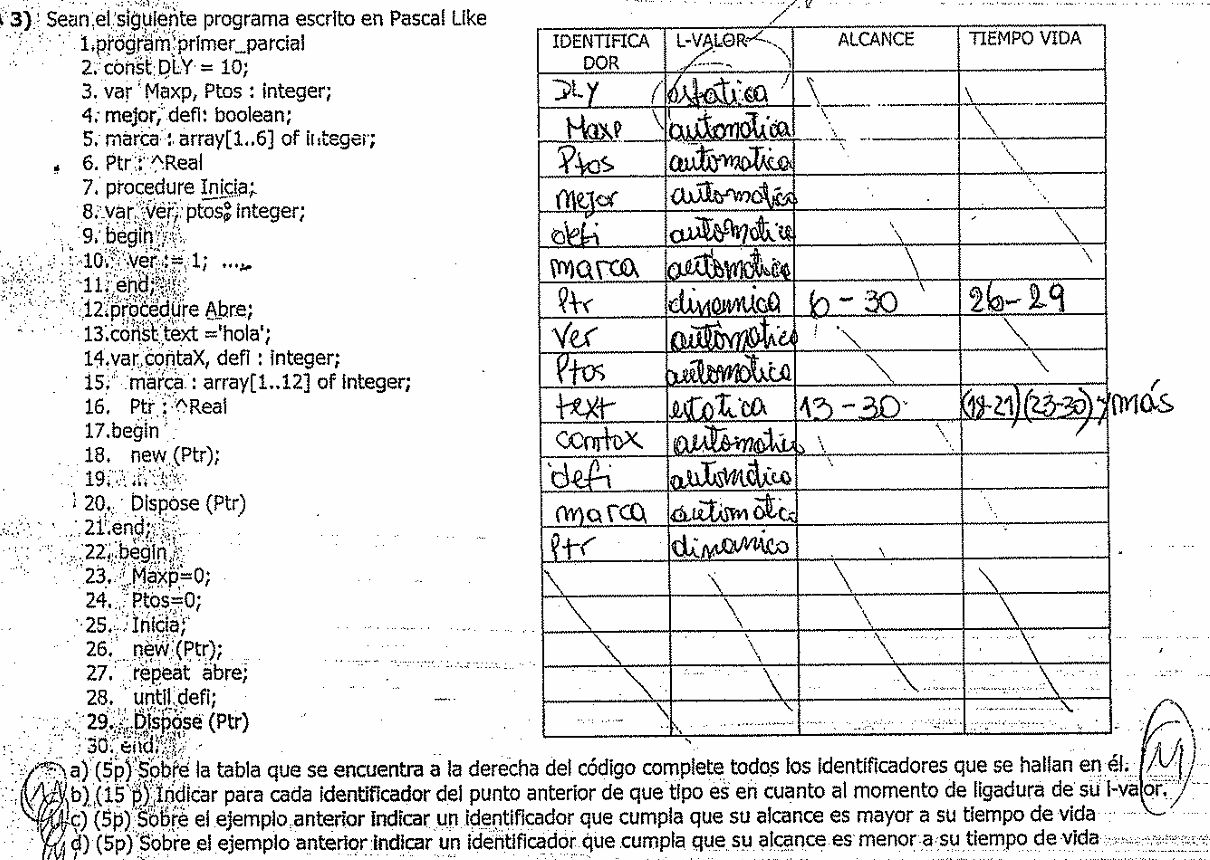 3) Sean el siguiente programa escrito en Pascal Like
1.program primer_parcial
2. const DLY = 10;
3. var Maxp, Ptos : integer;
4. mejor, defi: boolean;
5. marca : array[1..6] of integer;
6. Ptr : ^Real
7. procedure Inicia;
8. var ver, ptos: integer;
9. begin
10. ver := 1; ....
11. end;
12.procedure Abre;
13.const text ='hola';
14.var contaX, defi : integer;
15. marca : array[1..12] of integer;
16. Ptr : ^Real
17.begin
18. new (Ptr);
19.
20. Dispose (Ptr)
21.end;
22. begin
23. Maxp=0;
24. Ptos=0;
25. Inicia;
26. new (Ptr);
27. repeat abre;
28. until defi;
29. Dispose (Ptr)
30. end.
IDENTIFICA DOR L-VALOR ALCANCE TIEMPO VIDA
DLY estatica
Maxp automatica
Ptos automatica
mejor automatica
defi automatica
marca automatica
Ptr dinamica 6 - 30 26 - 29
Ver automatica
Ptos automatica
text estatica 13 - 30 (18-21)(23-30) y más
contox automatico
defi automatico
marca automatico
Ptr dinamico
a) (5p) Sobre la tabla que se encuentra a la derecha del código complete todos los identificadores que se hallan en él.
b) (15 p) Indicar para cada identificador del punto anterior de que tipo es en cuanto al momento de ligadura de su l-valor.
c) (5p) Sobre el ejemplo anterior indicar un identificador que cumpla que su alcance es mayor a su tiempo de vida
d) (5p) Sobre el ejemplo anterior indicar un identificador que cumpla que su alcance es menor a su tiempo de vida